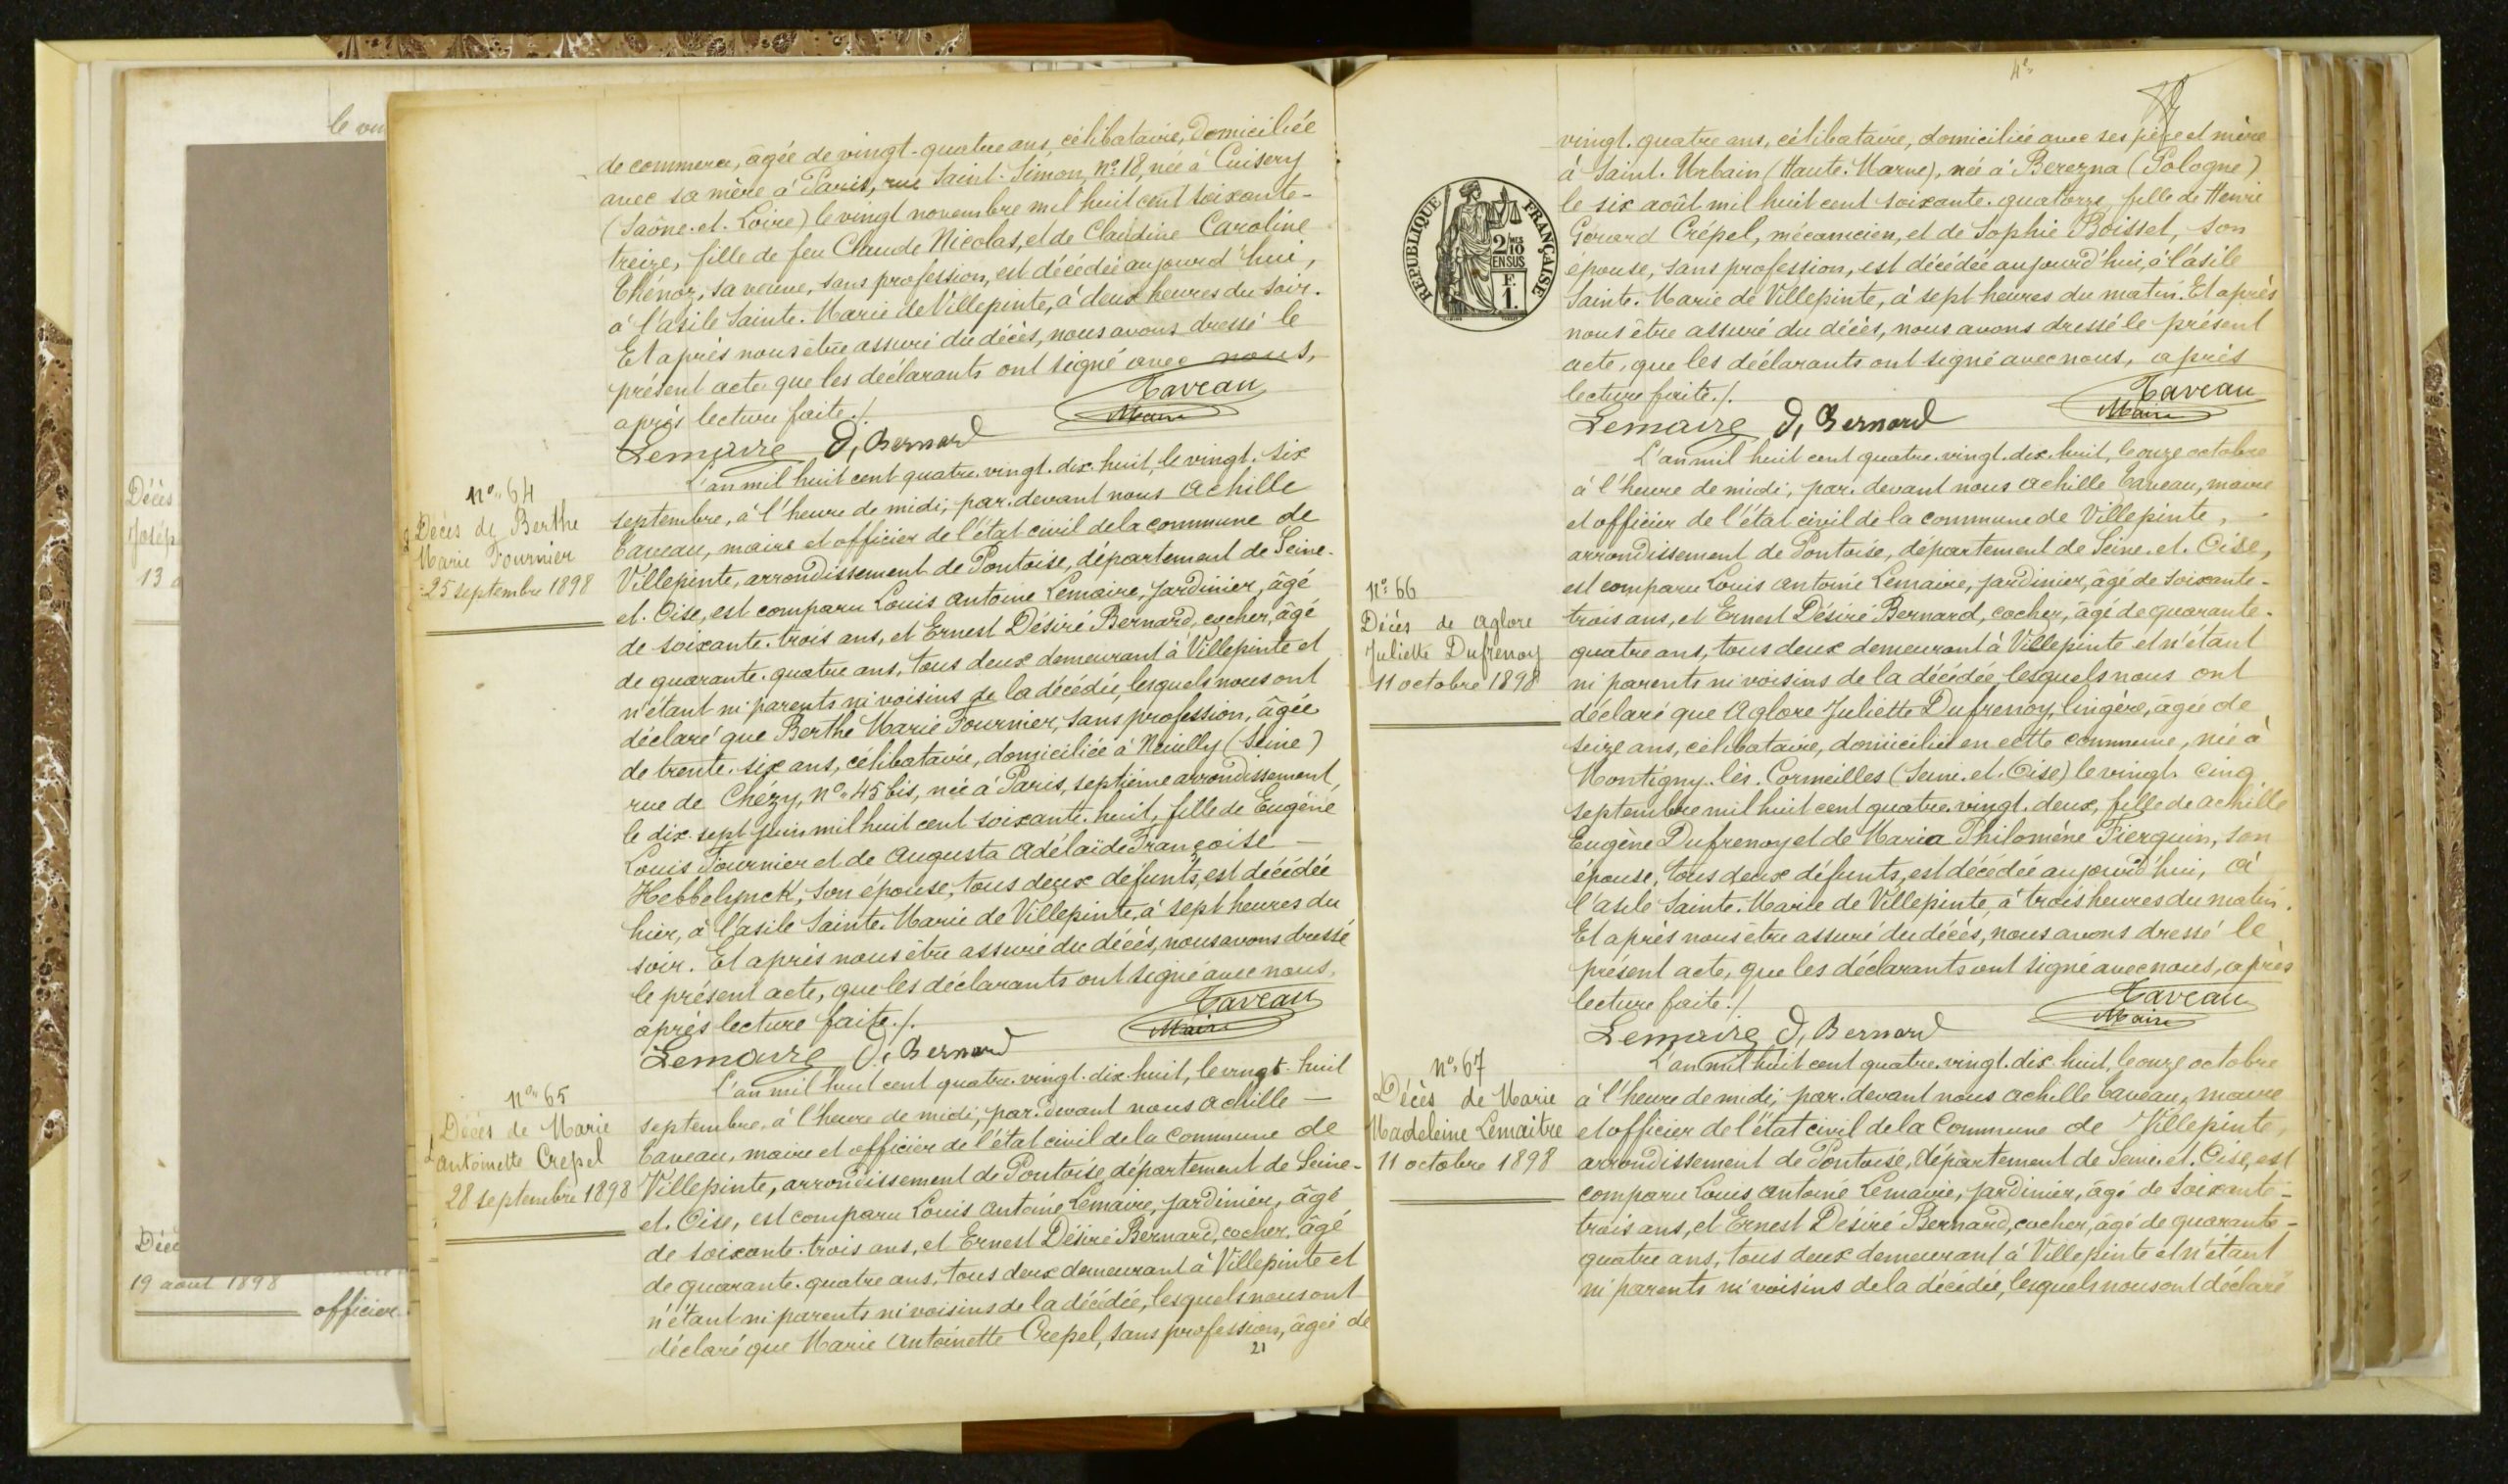 le vin
Décès
Josép
13 a
Déc
19 aout 1898
officier
de commerce, âgée de vingt-quatre ans, célibataire, domiciliée
avec sa mère à Paris, rue Saint-Simon, No 18, née à Cuisery
(Saône-et-Loire) le vingt novembre mil huit cent soixante-
treize, fille de feu Claude Nicolas, et de Claudine Caroline
Thénoz, sa veuve, sans profession, est décédée aujourd'hui,
à l'asile Sainte-Marie de Villepinte, à deux heures du soir.
Et après nous être assuré du décès, nous avons dressé le
présent acte, que les déclarants ont signé avec nous,
après lecture faite./.
Taveau
Maire
Lemaire D, Bernard
No 64
Décès de Berthe
Marie Fournier
25 septembre 1898
L'an mil huit cent quatre-vingt-dix-huit, le vingt-six
septembre, à l'heure de midi, par-devant nous Achille
Taveau, maire et officier de l'état civil de la commune de
Villepinte, arrondissement de Pontoise, département de Seine-
et-Oise, est comparu Louis Antoine Lemaire, jardinier, âgé
de soixante-trois ans, et Ernest Désiré Bernard, cocher, âgé
de quarante-quatre ans, tous deux demeurant à Villepinte et
n'étant ni parents ni voisins de la décédée, lesquels nous ont
déclaré que Berthe Marie Fournier, sans profession, âgée
de trente-six ans, célibataire, domiciliée à Neuilly (Seine)
rue de Chézy, No 45 bis, née à Paris, septième arrondissement,
le dix-sept juin mil huit cent soixante-huit, fille de Eugène
Louis Fournier et de Augusta Adélaïde Françoise —
Hebbelynck, son épouse, tous deux défunts, est décédée
hier, à l'asile Sainte-Marie de Villepinte, à sept heures du
soir. Et après nous être assuré du décès, nous avons dressé
le présent acte, que les déclarants ont signé avec nous,
après lecture faite./.
Taveau
Maire
Lemaire D, Bernard
No 65
Décès de Marie
Antoinette Crepel
28 septembre 1898
L'an mil huit cent quatre-vingt-dix-huit, le vingt-huit
septembre, à l'heure de midi, par-devant nous Achille —
Taveau, maire et officier de l'état civil de la commune de
Villepinte, arrondissement de Pontoise, département de Seine-
et-Oise, est comparu Louis Antoine Lemaire, jardinier, âgé
de soixante-trois ans, et Ernest Désiré Bernard, cocher, âgé
de quarante-quatre ans, tous deux demeurant à Villepinte et
n'étant ni parents ni voisins de la décédée, lesquels nous ont
déclaré que Marie Antoinette Crepel, sans profession, âgée de
21
vingt-quatre ans, célibataire, domiciliée avec ses père et mère
à Saint-Urbain (Haute-Marne), née à Berezna (Pologne)
le six août mil huit cent soixante-quatorze, fille de Henri
Gérard Crépel, mécanicien, et de Sophie Boisset, son
épouse, sans profession, est décédée aujourd'hui, à l'asile
Sainte-Marie de Villepinte, à sept heures du matin. Et après
nous être assuré du décès, nous avons dressé le présent
acte, que les déclarants ont signé avec nous, après
lecture faite./.
Taveau
Maire
Lemaire D, Bernard
REPUBLIQUE FRANÇAISE
2/10 EN SUS
F. 1.
No 66
Décès de Aglore
Juliette Dufrenoy
11 octobre 1898
L'an mil huit cent quatre-vingt-dix-huit, le onze octobre
à l'heure de midi, par-devant nous Achille Taveau, maire
et officier de l'état civil de la commune de Villepinte,
arrondissement de Pontoise, département de Seine-et-Oise,
est comparu Louis Antoine Lemaire, jardinier, âgé de soixante-
trois ans, et Ernest Désiré Bernard, cocher, âgé de quarante-
quatre ans, tous deux demeurant à Villepinte et n'étant
ni parents ni voisins de la décédée lesquels nous ont
déclaré que Aglore Juliette Dufrenoy, lingère, âgée de
seize ans, célibataire, domiciliée en cette commune, née à
Montigny-lès-Cormeilles (Seine-et-Oise) le vingt-cinq
septembre mil huit cent quatre-vingt-deux, fille de Achille
Eugène Dufrenoy et de Maria Philomène Fierquin, son
épouse, tous deux défunts, est décédée aujourd'hui, à
l'asile Sainte-Marie de Villepinte, à trois heures du matin.
Et après nous être assuré du décès, nous avons dressé le
présent acte, que les déclarants ont signé avec nous, après
lecture faite./.
Taveau
Maire
Lemaire D, Bernard
No 67
Décès de Marie
Madeleine Lemaitre
11 octobre 1898
L'an mil huit cent quatre-vingt-dix-huit, le onze octobre
à l'heure de midi, par-devant nous Achille Taveau, maire
et officier de l'état civil de la Commune de Villepinte,
arrondissement de Pontoise, département de Seine-et-Oise, est
comparu Louis Antoine Lemaire, jardinier, âgé de soixante-
trois ans, et Ernest Désiré Bernard, cocher, âgé de quarante-
quatre ans, tous deux demeurant à Villepinte et n'étant
ni parents ni voisins de la décédée, lesquels nous ont déclaré